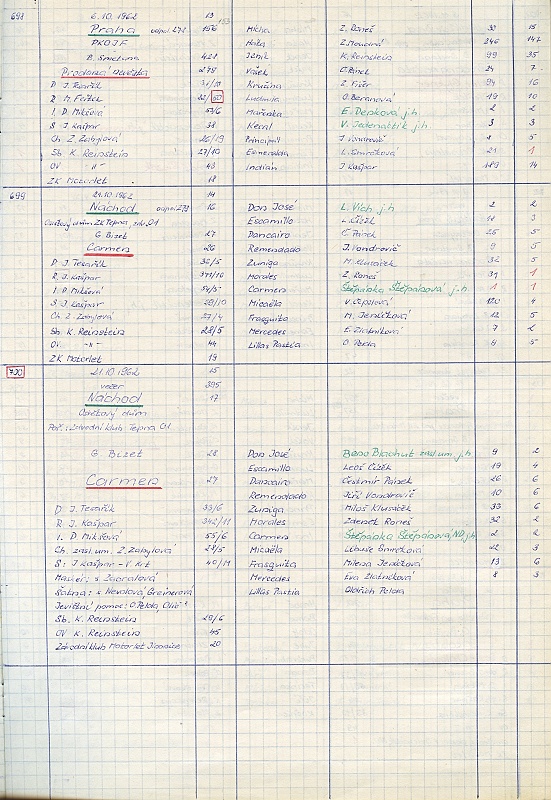 698 6.10.1962 13
Praha odpol. 272 156 Mícha Z. Raneš 30 15
PKOJF Háta Z. Moudrá 246 147
B. Smetana 421 Jeník K. Reinstein 99 35
Prodaná nevěsta 278 Vašek Č. Pánek 24 7
D J. Tesařík Krušina Z. Fišer 94 16
R M. Foltýn Ludmila O. Beranová 19 10
I. D. Mikšová 57/6 Mařenka E. Depková j.h. 2 2
S J. Kašpar 38 Kecal V. Jedenáctík j.h. 3 3
Ch Z. Zabylová 26/19 Principál J. Vondrovič 5
Sb K. Reinstein 27/10 Esmeralda L. Smrčková 21 1
OV -"- 43 Indián J. Kašpar 189 14
ZK Motorlet 18
699 21.10.1962 14
Náchod odpol. 273 16 Don José L. Vích j.h. 2 2
Osvětový dům ZK Tepna, záv. 01 Escamillo L. Čížek 18 3
G. Bizet 27 Dancairo Č. Pánek 25 5
Carmen 26 Remendado J. Vondrovič 9 5
D J. Tesařík 32/5 Zuniga M. Klusáček 32 5
R. J. Kašpar 341/10 Morales Z. Raneš 31 1
I. D Mikšová 54/5 Carmen Štěpánka Štěpánová j.h. 1 1
S J. Kašpar Micaëla V. Čepsiová 120 4
Ch Z. Zabylová 27/4 Frasquita M. Jendičková 12 5
Sb. K. Reinstein 28/5 Mercedes E. Zlatníková 7 2
OV. -"- 44 Lillas Pastia O. Pelda 8 5
ZK Motorlet 19
700 21.10.1962 15
večer 395
Náchod 17
Osvětový dům
Poř.: Závodní klub Tepna 01
G. Bizet 28 Don José Beno Blachut zasl. um. j.h. 9 2
Escamillo Leoš Čížek 19 4
Carmen 27 Dancairo Čestmír Pánek 26 6
Remendado Jiří Vondrovič 10 6
D J. Tesařík 33/6 Zuniga Miloš Klusáček 33 6
R J. Kašpar 342/11 Morales Zdeněk Raneš 32 2
I. D Mikšová 55/6 Carmen Štěpánka Štěpánová ND, j.h. 2 2
Ch. zasl. um. Z. Zabylová 28/5 Micaëla Libuše Smrčková 42 3
S: J Kašpar - V. Krt 40/11 Frasquita Milena Jendičková 13 6
Maskéř: s Zaoralová Mercedes Eva Zlatníková 8 3
Satna: s Nevolová Greinerová Lillas Pastia Oldřich Pelda
Jevištní pomoc: O. Pelda
Sb. K. Reinstein 29/6
OV K. Reinstein 45
Závodní klub Motorlet Jinonice 20